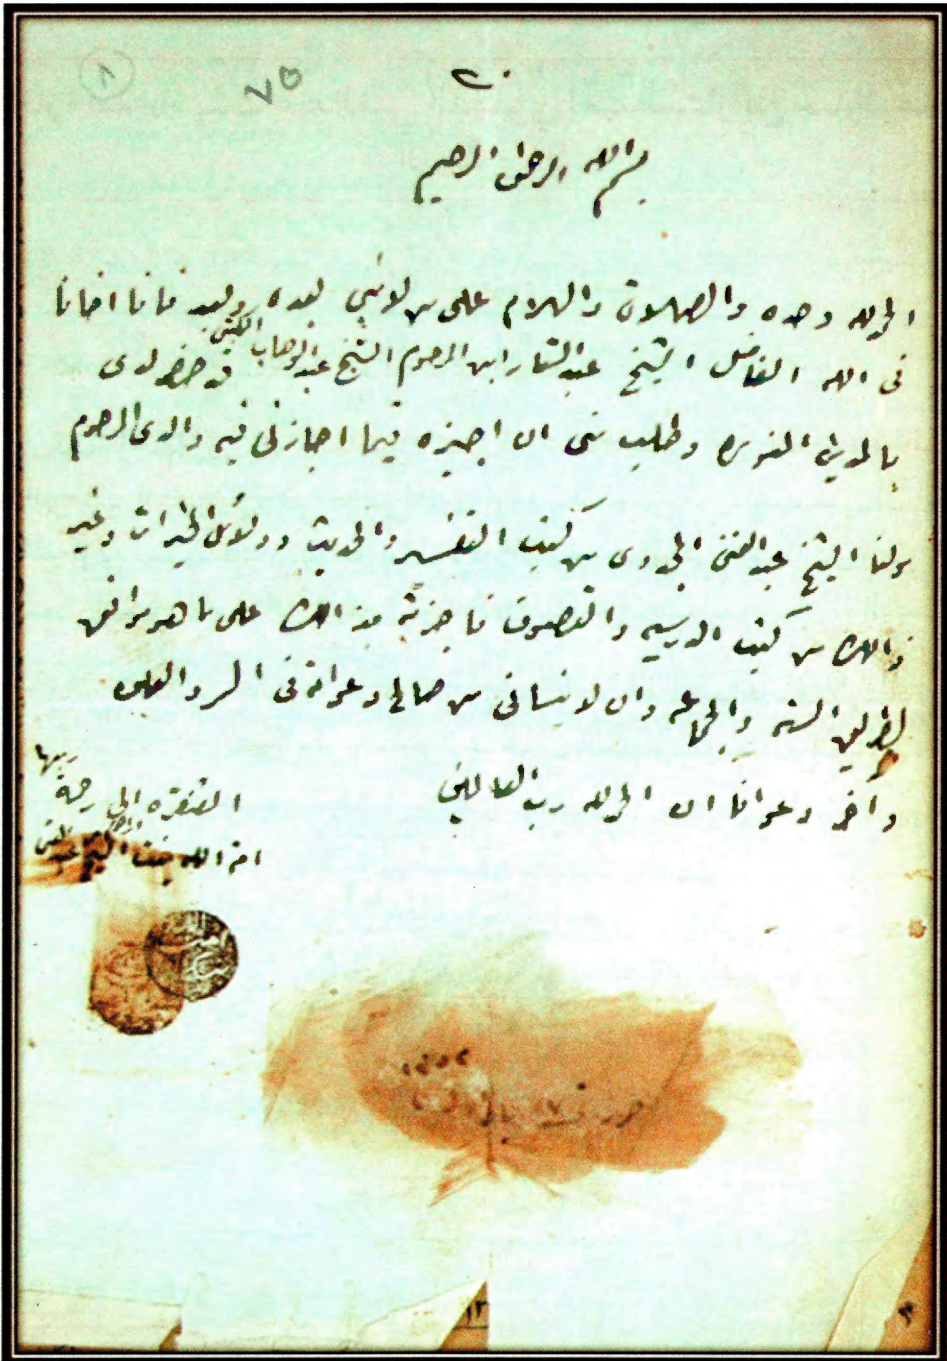 ٨
٧٥
٢٠
بسم الله الرحمن الرحيم
الحمد لله وحده والصلاة والسلام على من لا نبي بعده وبعد فانا اخانا
في الله الفاضل الشيخ عبد الستار ابن المرحوم الشيخ عبد الوهاب الكتبي قد حضر لدى
بالمدينة المنوره وطلب منى ان اجيزه فيما اجازنى فيه والدى المرحوم
مولنا الشيخ عبد الغنى المجددى من كتب التفسير والحديث ودلائل الخيرات وغير
ذالك من كتب الدرسيه والتصوف فاجزته بذالك على ما هو موافق
لطريق السنه والجماعه وان لا ينسانى من صالح دعواته فى السر والعلن
واخر دعوانا ان الحمد لله رب العالمين
المفتقره الى رحمة ربها
امة الله بنت المرحوم الشيخ عبد الغنى
حرر فى